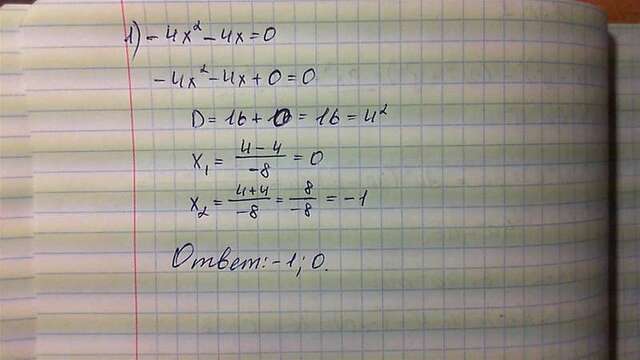 1) -4x² - 4x = 0
-4x² - 4x + 0 = 0
D = 16 + 0 = 16 = 4²
x₁ = (4 - 4)/(-8) = 0
x₂ = (4+4)/(-8) = 8/(-8) = -1
Ответ: -1; 0.